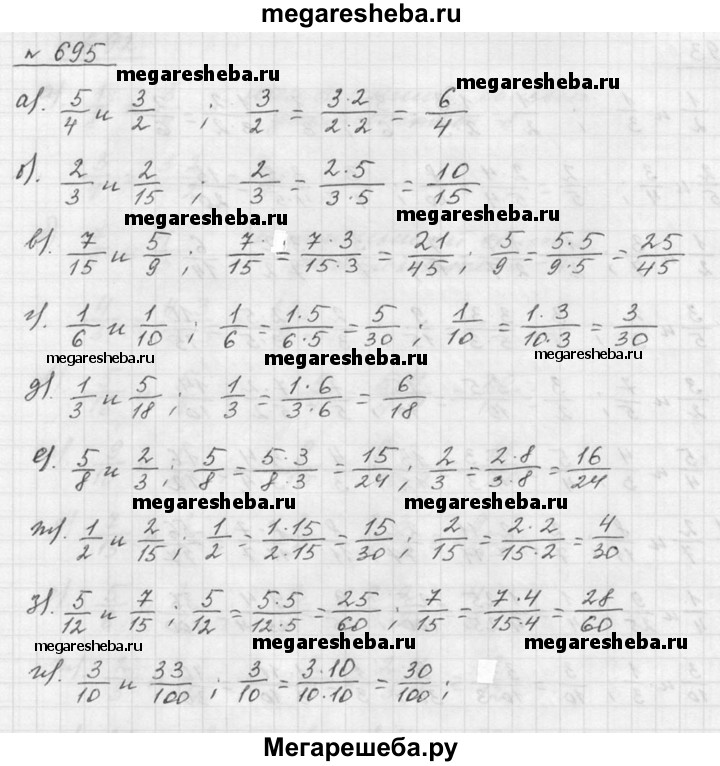 megaresheba.ru
№ 695
megaresheba.ru
megaresheba.ru
а). 5/4 и 3/2 ; 3/2 = 3·2/2·2 = 6/4
б). 2/3 и 2/15 ; 2/3 = 2·5/3·5 = 10/15
megaresheba.ru
megaresheba.ru
в). 7/15 и 5/9 ; 7·/15 = 7·3/15·3 = 21/45 ; 5/9 = 5·5/9·5 = 25/45
г). 1/6 и 1/10 ; 1/6 = 1·5/6·5 = 5/30 ; 1/10 = 1·3/10·3 = 3/30
megaresheba.ru
megaresheba.ru
megaresheba.ru
д). 1/3 и 5/18 ; 1/3 = 1·6/3·6 = 6/18
е). 5/8 и 2/3 ; 5/8 = 5·3/8·3 = 15/24 ; 2/3 = 2·8/3·8 = 16/24
megaresheba.ru
megaresheba.ru
ж). 1/2 и 2/15 ; 1/2 = 1·15/2·15 = 15/30 ; 2/15 = 2·2/15·2 = 4/30
з). 5/12 и 7/15 ; 5/12 = 5·5/12·5 = 25/60 ; 7/15 = 7·4/15·4 = 28/60
megaresheba.ru
megaresheba.ru
megaresheba.ru
и). 3/10 и 33/100 ; 3/10 = 3·10/10·10 = 30/100 ;
Мегарешеба.ру